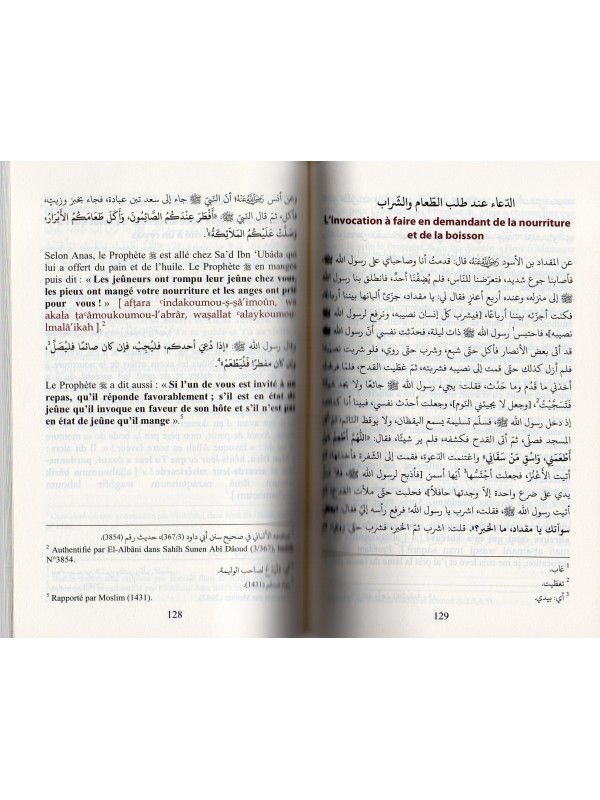 وعن أنس رضي الله عنه؛ أنّ النّبيّ ﷺ جاء إلى سعد بن عبادة، فجاء بخبز وزيت،
فأكل، ثم قال النّبي ﷺ: «أَفْطَرَ عِنْدَكُمُ الصَّائِمُونَ، وَأَكَلَ طَعَامَكُمُ الْأَبْرَارُ،
وَصَلَّتْ عَلَيْكُمُ الْمَلَائِكَةُ».
Selon Anas, le Prophète ﷺ est allé chez Sa'd Ibn 'Ubâda qui
lui a offert du pain et de l'huile. Le Prophète ﷺ en mangea
puis dit : « Les jeûneurs ont rompu leur jeûne chez vous,
les pieux ont mangé votre nourriture et les anges ont prié
pour vous ! » [ aftara 'indakoumou-ṣ-ṣâ'imoûn, wa
akala ṭa'âmoukoumou-l'abrâr, waṣallat 'alaykoumou
lmalâ'ikah ].2
وقال رسول الله ﷺ: «إذا دُعِيَ أحدكم، فليُجِبْ، فإن كان صائما فليُصَلِّ،
وإن كان مفطرًا فَلْيَطْعَمْ».
Le Prophète ﷺ a dit aussi : « Si l'un de vous est invité à un
repas, qu'il réponde favorablement ; s'il est en état de
jeûne qu'il invoque en faveur de son hôte et s'il n'est pas
en état de jeûne qu'il mange ».5
الألباني في صحيح سنن أبي داود (367/3) حديث رقم (3854).
2 Authentifié par El-Albâni dans Sahîh Sunen Abî Dâoud (3/367), hadith
N°3854.
لصاحب الوليمة.
(1431).
5 Rapporté par Moslim (1431).
128
الدّعاء عند طلب الطّعام والشّراب
L'invocation à faire en demandant de la nourriture
et de la boisson
عن المقداد بن الأسود رضي الله عنه قال: قدمتُ أنا وصاحباي على رسول الله ﷺ
فأصابنا جوع شديد، فتعرّضنا للنّاس، فلم يُضِفْنَا أحدٌ، فانطلق بنا رسول الله ﷺ
إلى منزله، وعنده أربع أعنز فقال لي: يا مقداد، جزّئ ألبانها بيننا أرباعًا،
فكنت أجزّئها بيننا أرباعًا، [فيشرب كلّ إنسان نصيبه، ونرفع لرسول الله ﷺ
نصيبه] فاحتبس1 رسول الله ﷺ ذات ليلة، فحدّثت نفسي أنّ رسول الله ﷺ
قد أتى بعض الأنصار فأكل حتّى شبع، وشرب حتّى روي، فلو شربت نصيبه،
فلم أزل كذلك حتّى قمت إلى نصيبه فشربته، ثم غطّيت القدح، فلمّا فرغت
أخذني ما قدُم وما حدَث، فقلت: يجيء رسول الله ﷺ جائعًا ولا يجد
فَتَسَجَّيْتُ2، [وجعل لا يجيئني النّوم]، وجعلت أحدّث نفسي، فبينا أنا كذلك
إذ دخل رسول الله ﷺ، فسلّم تسليمة يسمع اليقظان ولا يوقظ النّائم،
المسجد فصلّى، ثمّ أتى القدح فكشفه، فلم ير شيئًا، فقال: «اللَّهُمَّ أَطْعِمْ مَنْ
أَطْعَمَنِي، وَاسْقِ مَنْ سَقَانِي» واغتنمت الدّعوة، فقمت إلى الشّفرة
أتيت الأعْنُزَ، فجعلت أجُسُّها3 أيّها أسمن [فأذبح لرسول الله ﷺ،
يدي على ضرع واحدة إلا وجدتها حافلاً] فحلبت حتّى ملأت القدح،
أتيت رسول الله ﷺ، فقلت: اشرب يا رسول الله! فرفع رأسه إليّ، فقال:
سوآتك يا مقداد، ما الخبر؟». قلت: اشرب ثمّ الخبر، فشرب حتّى روي،
1 غاب.
2 تغطّيت.
3 أي: بيدي.
129